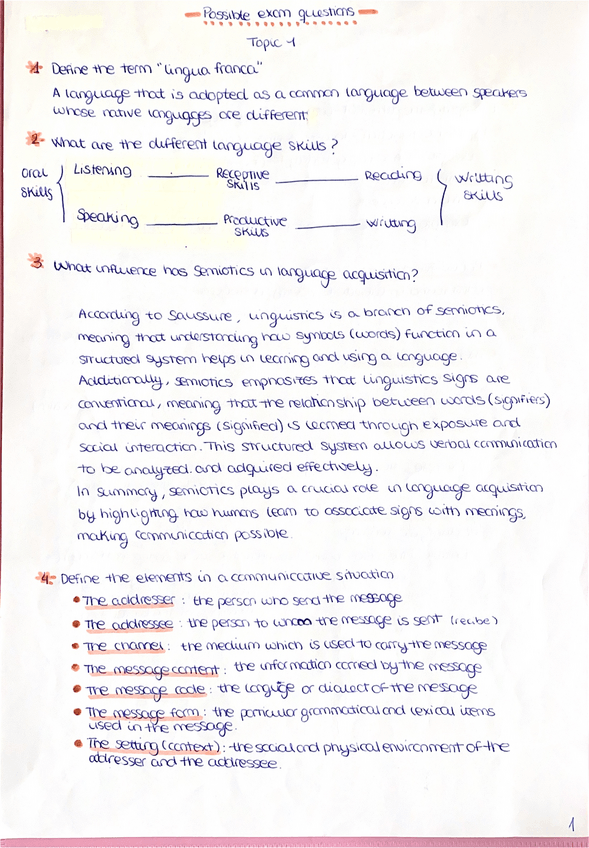 Possible exam questions
Topic 1
1 Define the term "lingua franca"
A language that is adopted as a common language between speakers
whose native languages are different.
2 What are the different language skills?
Oral skills
Listening Receptive skills Reading
Speaking Productive skills Writting
Writting skills
3 What influence has semiotics in language acquisition?
According to Saussure, linguistics is a branch of semiotics,
meaning that understanding how symbols (words) function in a
structured system helps in learning and using a language.
Additionally, semiotics emphasizes that linguistics signs are
conventional, meaning that the relationship between words (signifiers)
and their meanings (signified) is learned through exposure and
social interaction. This structured system allows verbal communication
to be analyzed and adquired effectively.
In summary, semiotics plays a crucial role in language acquisition
by highlighting how humans learn to associate signs with meanings,
making communication possible.
4 Define the elements in a communicative situation
• The addresser : the person who send the message
• The addressee : the person to whom the message is sent (recibe)
• The channel : the medium which is used to carry the message
• The message content : the information carried by the message
• The message code : the language or dialect of the message
• The message form : the particular grammatical and lexical items
used in the message.
• The setting (context) : the social and physical environment of the
addresser and the addressee.
1